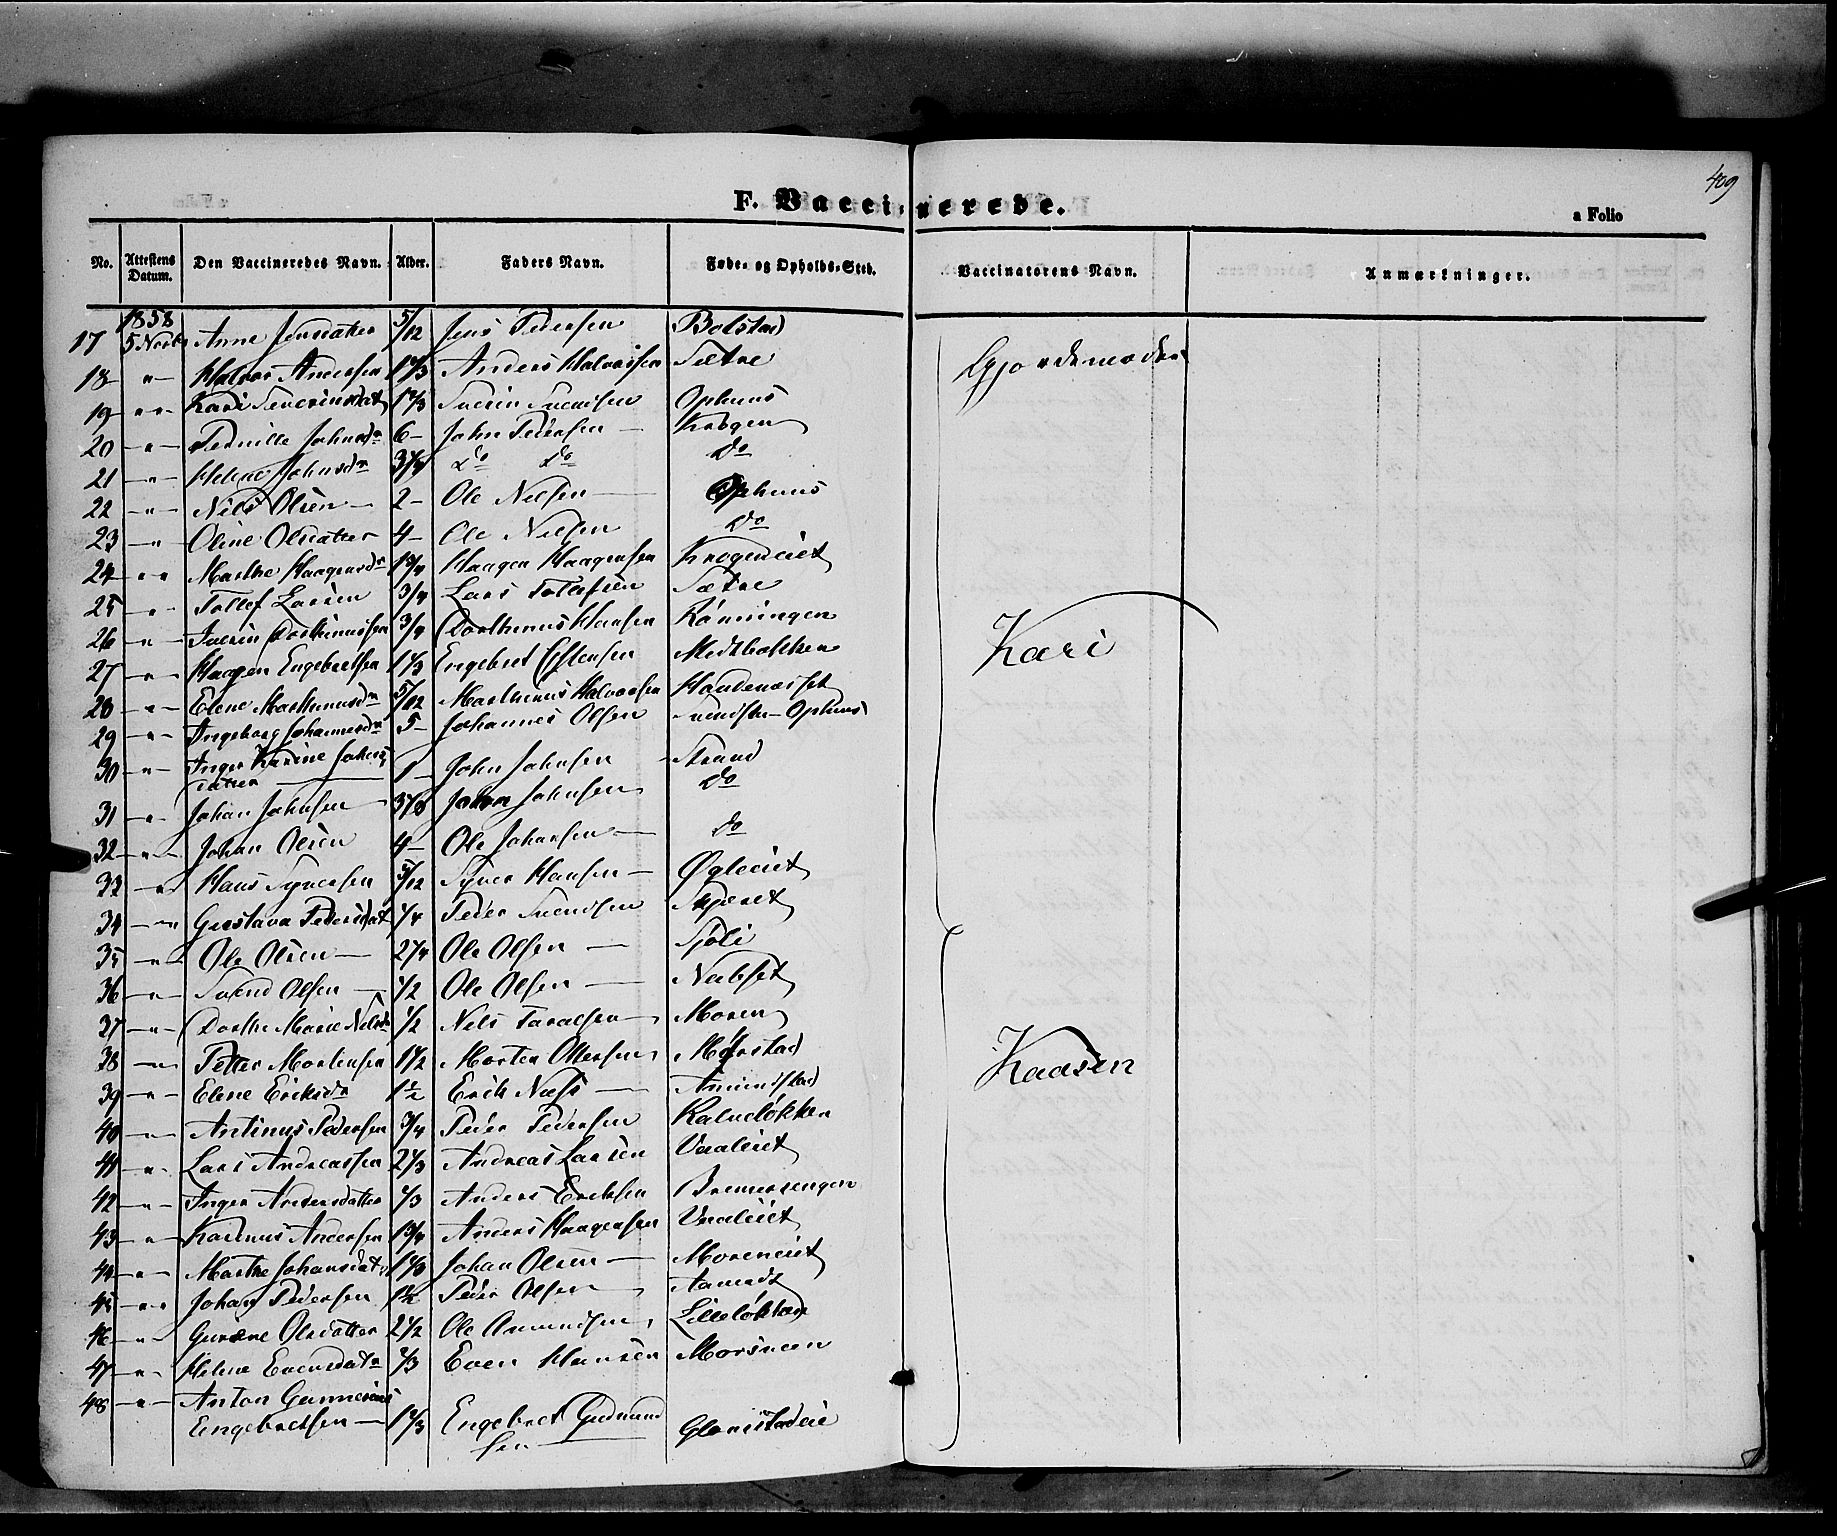 409
F. Vaccinerede.
a Folio
No. Attestens Datum. Den Vaccineredes Navn. Alder. Faders Navn. Føde- og Opholds-Sted. Vaccinatorens Navn. Anmærkninger.
1858
17 5 Novbr Anne Jensdatter 5/12 Jens Pedersen Bolstad
18 " Halvor Andersen Anders Halvorsen Sætre
19 " Kari Severinsdat Ophuus
20 " Pernille Johnsdr 6 John Pedersen Krogen
21 " Helene Johnsdr do do do
22 " Nils Olsen 2 Ole Nilsen Ophuus
23 " Oline Olsdatter 4 Ole Nilsen do
24 " Marthe Haagensdr Haagen Haagensen Krogeneiet
25 " Tollef Larsen 3/4 Lars Tollefsen Sætre
26 " Iverin Dorthinussen 3/4 Dorthinus Hansen Rønningen
27 " Haagen Engebretsen Engebret Estensen Midtbakken
28 " Elene Marthinusdr 5/12 Marthinus Halvorsen
29 " Ingeborg Johannesdr 5 Johannes Olsen Ophuus
30 " Inger Karine Johns
datter 1 John Johnsen Strand
31 " Johan Johnsen John Johnsen do
32 " Johan Olsen 4 Ole Johansen do
33 " Hans Syversen 5/12 Syver Hansen Øgleeiet
34 " Gustava Pedersdat 1/4 Peder Svendsen Skjæret
35 " Ole Olsen 2 1/4 Ole Olsen Sjøli
36 " Svend Olsen 1/2 Ole Olsen Nabset
37 " Dorthe Marie Nilsdr 1/2 Nils Taralsen Moren
38 " Petter Mortensen 1 1/2 Morten Ottersen Mørstad
39 " Elene Eriksdr 1 1/2 Erik Næss Amundstad
40 " Antinus Pedersen 3/4 Peder Pedersen Kalveløkken
41 " Lars Andreassen 2 1/3 Andreas Larsen Vaaleiet
42 " Inger Andersdatter Anders Eriksen Bremersengen
43 " Karinus Andersen 1 3/4 Anders Haagensen Vaaleiet
44 " Marthe Johansdatr Johan Olsen Moreneiet
45 " Johan Pedersen 1 1/2 Peder Olsen Aamodt
46 " Olsdatter 2 1/2 Ole Amundsen Lilleløkken
47 " Helene Evensdatr Even Hansen
48 " Anton Gunnerius
Engebretsen Engebret Gudmund
sen Glomstadeie
Gjordemoder
Kari
Kaasen